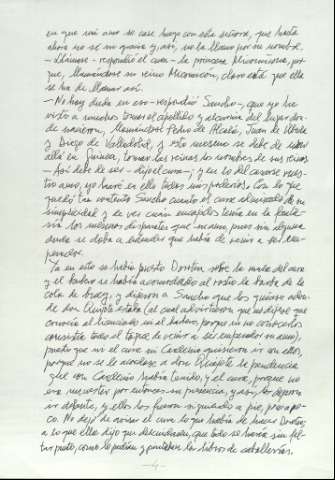 en que mi amo se case luego con esta señora, que hasta
ahora no sé su gracia y, así, no la llamo por su nombre.
—Llámase —respondió el cura— la princesa Micomicona, por-
que, llamándose su reino Micomicón, claro está que ella
se ha de llamar así.
—No hay duda en eso —respondió Sancho—, que yo he
visto a muchos tomar el apellido y alcurnia del lugar don-
de nacieron, llamándose Pedro de Alcalá, Juan de Úbeda
y Diego de Valladolid, y esto mesmo se debe de usar
allá en Guinea, tomar las reinas los nombres de sus reinos
—Así debe de ser —dijo el cura—; y en lo del casarse vues-
tro amo, yo haré en ello todos mis poderíos. Con lo que
quedó tan contento Sancho cuanto el cura admirado de su
simplicidad y de ver cuán encajados tenía en la fanta-
sía los mesmos disparates que su amo, pues sin alguna
duda se daba a entender que había de venir a ser em-
perador.
Ya en esto se había puesto Dorotea sobre la mula del cura
y el barbero se había acomodado al rostro la barba de la
cola de buey, y dijeron a Sancho que los guiase adon-
de don Quijote estaba (al cual advirtieron que no dijese que
conocía al licenciado ni al barbero, porque en no conocerlos
consistía todo el toque de venir a ser emperador su amo),
puesto que ni el cura ni Cardenio quisieron ir con ellos,
porque no se le acordase a don Quijote la pendencia
que con Cardenio había tenido, y el cura, porque no
era menester por entonces su presencia, y así, los dejaron
ir delante, y ellos los fueron siguiendo a pie, poco a po-
co. No dejó de avisar el cura lo que había de hacer Dorotea;
a lo que ella dijo que descuidasen, que todo se haría sin fal-
tar punto, como lo pedían y pintaban los libros de caballerías.